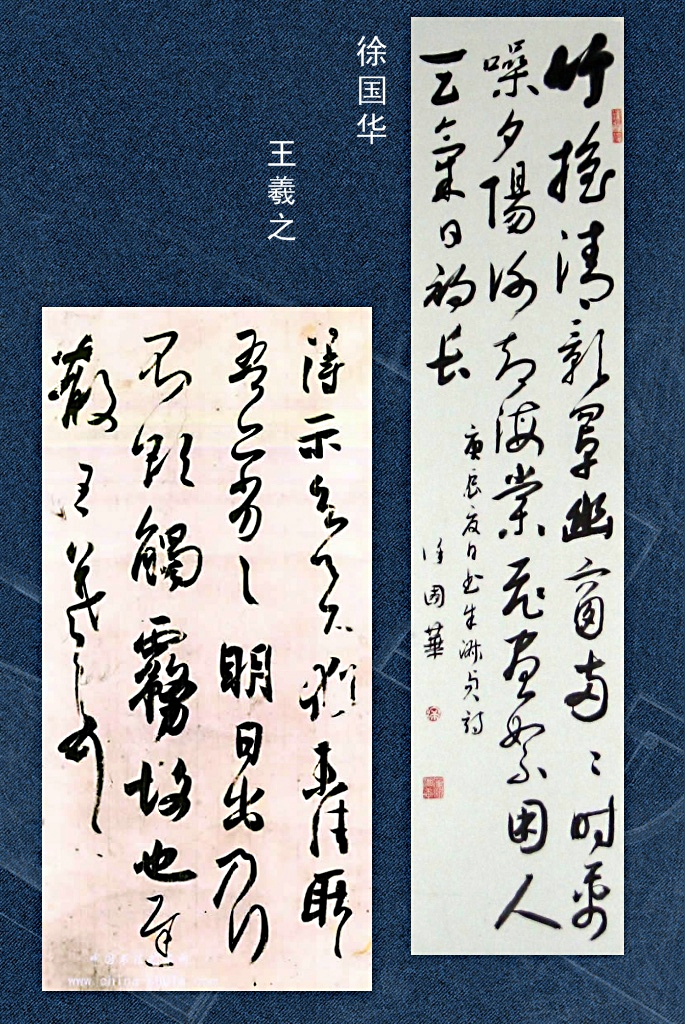 徐国华
王羲之
竹搖清影罩幽窗两々时禽
噪夕陽谢却海棠飞尽絮困人
天氣日初长
庚辰夏日书朱淑贞诗
徐国華
得示知足下猶未佳耿
吾亦劣々明日出乃行
不欲觸霧故也遲
散王羲之頓首